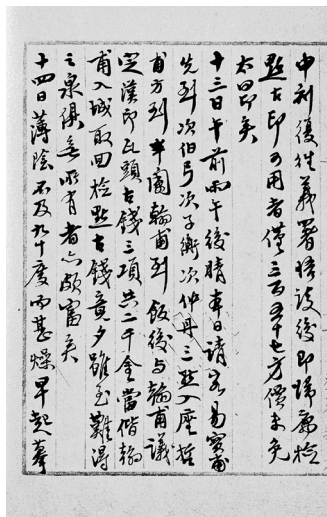 申刻復往義署悟談後即歸寓檢
點古印可用者僅三百五十七方價未免
太昂矣
十三日午前雨午後晴本日請客易實甫
先到次伯弓次子衡次仲丹三點入座哲
甫方到半園翰甫到飯後與翰甫議
定漢印瓦頭古錢三項共二千金當偕翰
甫入城取回檢點古錢竟夕雖至難得
之泉俱無所有者亦頗富矣
十四日薄陰不及九十度而甚燥早起摹